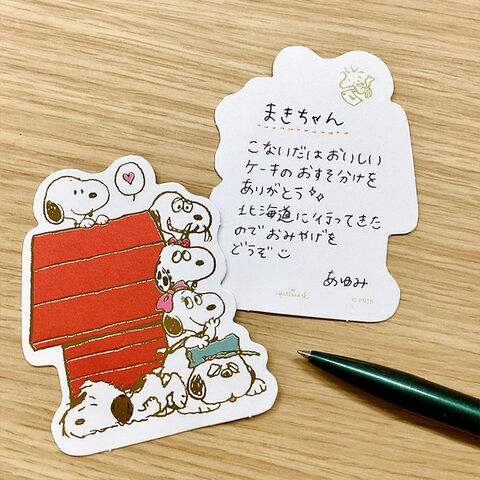 まきちゃん
こないだはおいしい
ケーキのおすそ分けを
ありがとう
北海道に行ってきた
のでおみやげを
どうぞ
あゆみ
Hallmark
© PNTS